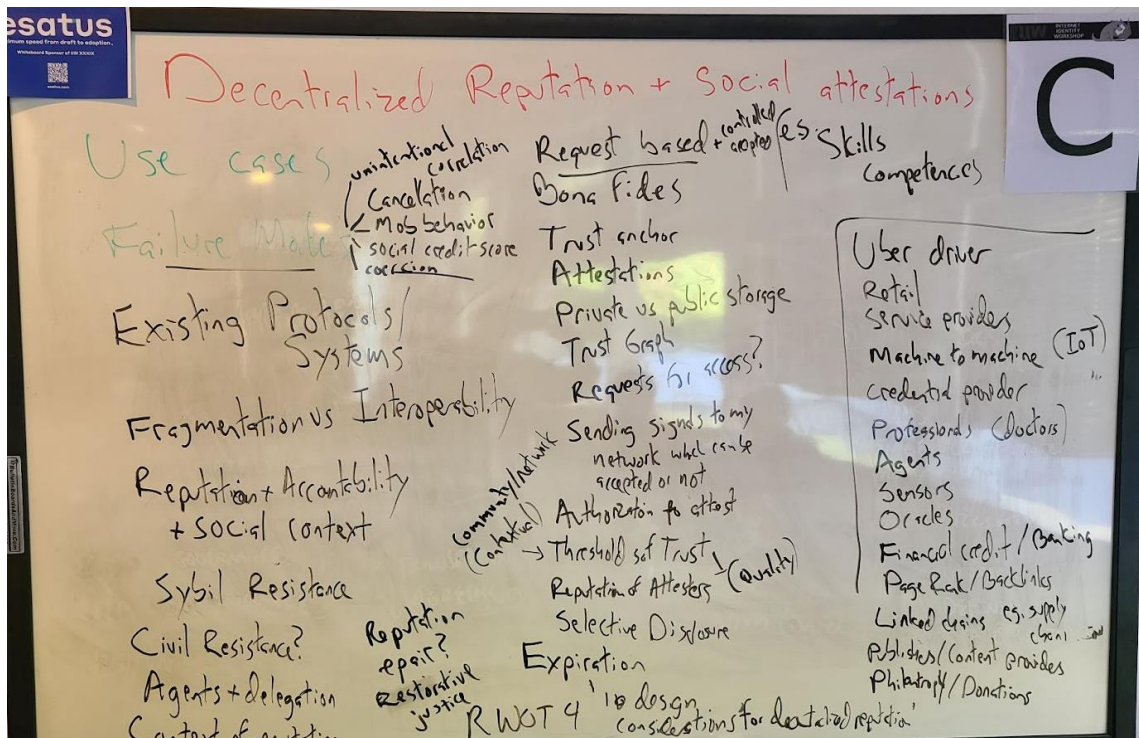 esatus
Whiteboard Sponsor of IIW XXXIX
esatus.com
INTERNET
IDENTITY
WORKSHOP
C
Decentralized Reputation + Social attestations
Use cases
Failure Modes
unintentional
correlation
Cancelation
Mob behavior
social credit score
coercion
Existing Protocols/
Systems
Fragmentation vs Interoperability
Reputation + Accountability
+ social context
Sybil Resistance
Civil Resistance?
Agents + delegation
Reputation
epair?
Restorative
justice
Request based + controlled
accepted
Bona Fides
Trust anchor
Attestations
Private vs public storage
Trust Graph
Requests for access?
Sending signals to my
network which can be
accepted or not
Authorization to attest
community/network
(Contextual)
→ Thresholds of Trust
Reputation of Attesters
(Quality)
Selective Disclosure
Expiration
RWOT 4 '10 design
considerations for decentralized reputation'
es: Skills
competences
Uber driver
Retail
Service providers
Machine to machine (IoT)
Credential provider
Professionals (doctors)
Agents
Sensors
Oracles
Financial credit / Banking
Page Rank / Backlinks
Linked chains eg. supply
chain
Publishers/Content provides
Philantropy/Donations